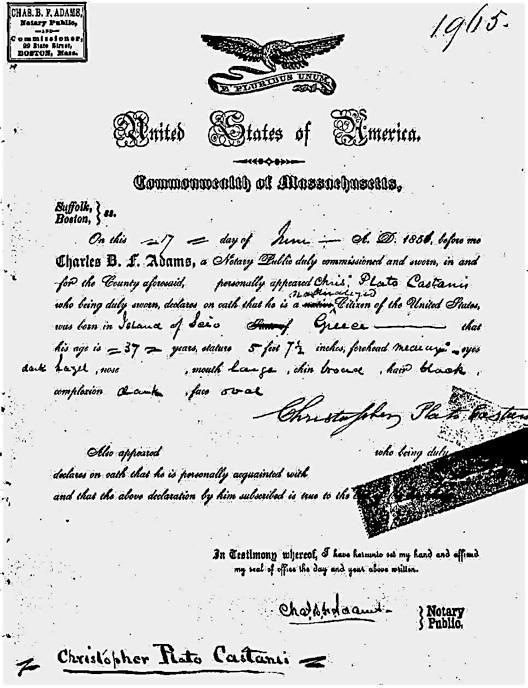 CHAS. B. F. ADAMS,
Notary Public,
—AND—
Commissioner,
99 State Street,
BOSTON, Mass.
1965.
E PLURIBUS UNUM
United States of America.
Commonwealth of Massachusetts,
Suffolk,
Boston, } ss.
On this 17 day of June A. D. 1856, before me
Charles B. F. Adams, a Notary Public duly commissioned and sworn, in and
for the County aforesaid, personally appeared Chris. Plato Castanis
naturalized
who being duly sworn, declares on oath that he is a native Citizen of the United States,
was born in Island of Scio State of Greece that
his age is 37 years, stature 5 feet 7½ inches, forehead medium eyes
dark hazel, nose , mouth large, chin broad, hair black,
complexion dark , face oval
Christopher Plato Castanis
Also appeared who being duly
declares on oath that he is personally acquainted with
and that the above declaration by him subscribed is true to the
In Testimony whereof, I have hereunto set my hand and affixed
my seal of office the day and year above written.
Chas B F Adams } Notary
Public.
Christopher Plato Castanis